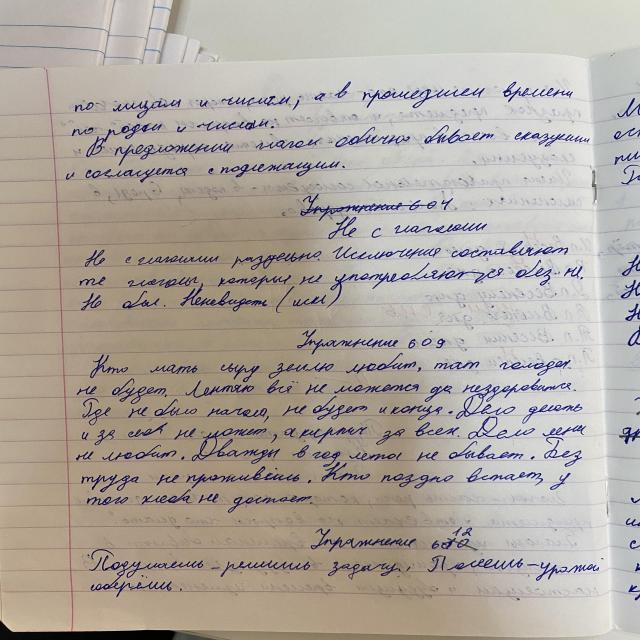 по лицам и числам; а в прошедшем времени
по родам и числам.
В предложении глагол обычно бывает сказуемым
и согласуется с подлежащим.
Упражнение 604
Не с глаголами
Не с глаголами раздельно. Исключение составляют
те глаголы, которые не употребляются без не.
Не был. Ненавидеть (искл)
Упражнение 609
Кто мать сыру землю любит, тот голоден
не будет. Лентяю всё не можется да нездоровится.
Где не было начала, не будет и конца. Дело делать
и за себя не может, а кирпич за всех. Дело лени
не любит. Дважды в год лето не бывает. Без
труда не проживёшь. Кто поздно встаёт, у
того хлеба не достаёт.
Упражнение 612
Подумаешь – решишь задачу. Полешь – урожай
соберёшь.